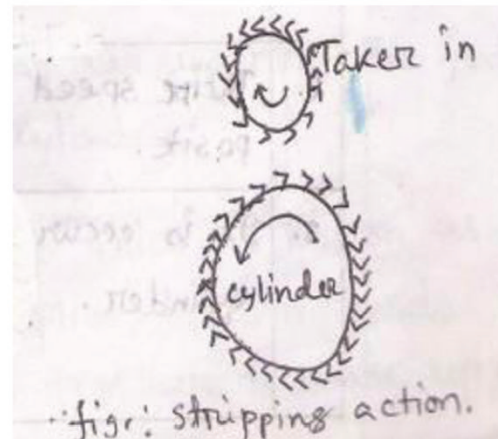 Taker in
cylinder
fig: stripping action.